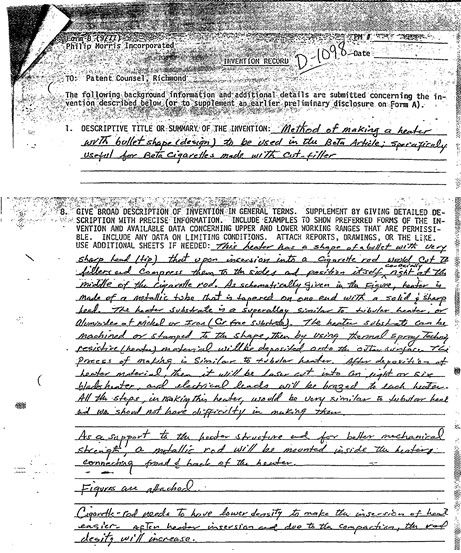 Form B (9/77)
PM #
Philip Morris Incorporated
Date
INVENTION RECORD
D-1098
TO: Patent Counsel, Richmond
The following background information and additional details are submitted concerning the in-
vention described below (or to supplement an earlier preliminary disclosure on Form A).
1. DESCRIPTIVE TITLE OR SUMMARY OF THE INVENTION: Method of making a heater
with bullet shape (design) to be used in the Beta Article; specifically
useful for Beta Cigarettes made with cut-filler
8. GIVE BROAD DESCRIPTION OF INVENTION IN GENERAL TERMS. SUPPLEMENT BY GIVING DETAILED DE-
SCRIPTION WITH PRECISE INFORMATION. INCLUDE EXAMPLES TO SHOW PREFERRED FORMS OF THE IN-
VENTION AND AVAILABLE DATA CONCERNING UPPER AND LOWER WORKING RANGES THAT ARE PERMISSI-
BLE. INCLUDE ANY DATA ON LIMITING CONDITIONS. ATTACH REPORTS, DRAWINGS, OR THE LIKE.
USE ADDITIONAL SHEETS IF NEEDED: This heater has a shape of a bullet with very
sharp head (tip) that upon insersion into a cigarette rod would cut to
fillers and compress them to the sides and position itself right at the
middle of the cigarette rod. As schematically given in the Figure, heater is
made of a metallic tube that is tapered on one end with a solid & sharp
head. The heater substrate is a superalloy similar to tubular heater, or
Aluminides of Nickel or Iron (Cr free substrate). The heater substrate can be
machined or stamped to the shape, then by using thermal spray
resistive (heater) material will be deposited onto the outer surface. The
process of making is similar to tubular heater. After deposition of
heater material, then it will be laser cut into an eight or six
blade heater, and electrical leads will be brazed to each heater.
All the steps, in making this heater, would be very similar to tubular heat
and we should not have difficulty in making them.
As a support to the heater structure and for better mechanical
strength, a metallic rod will be mounted inside the heater
connecting front & back of the heater.
Figures are attached.
Cigarette-rod needs to have lower density to make the insersion of heat
easier. after heater insersion and due to the compaction, the rod
density will increase.